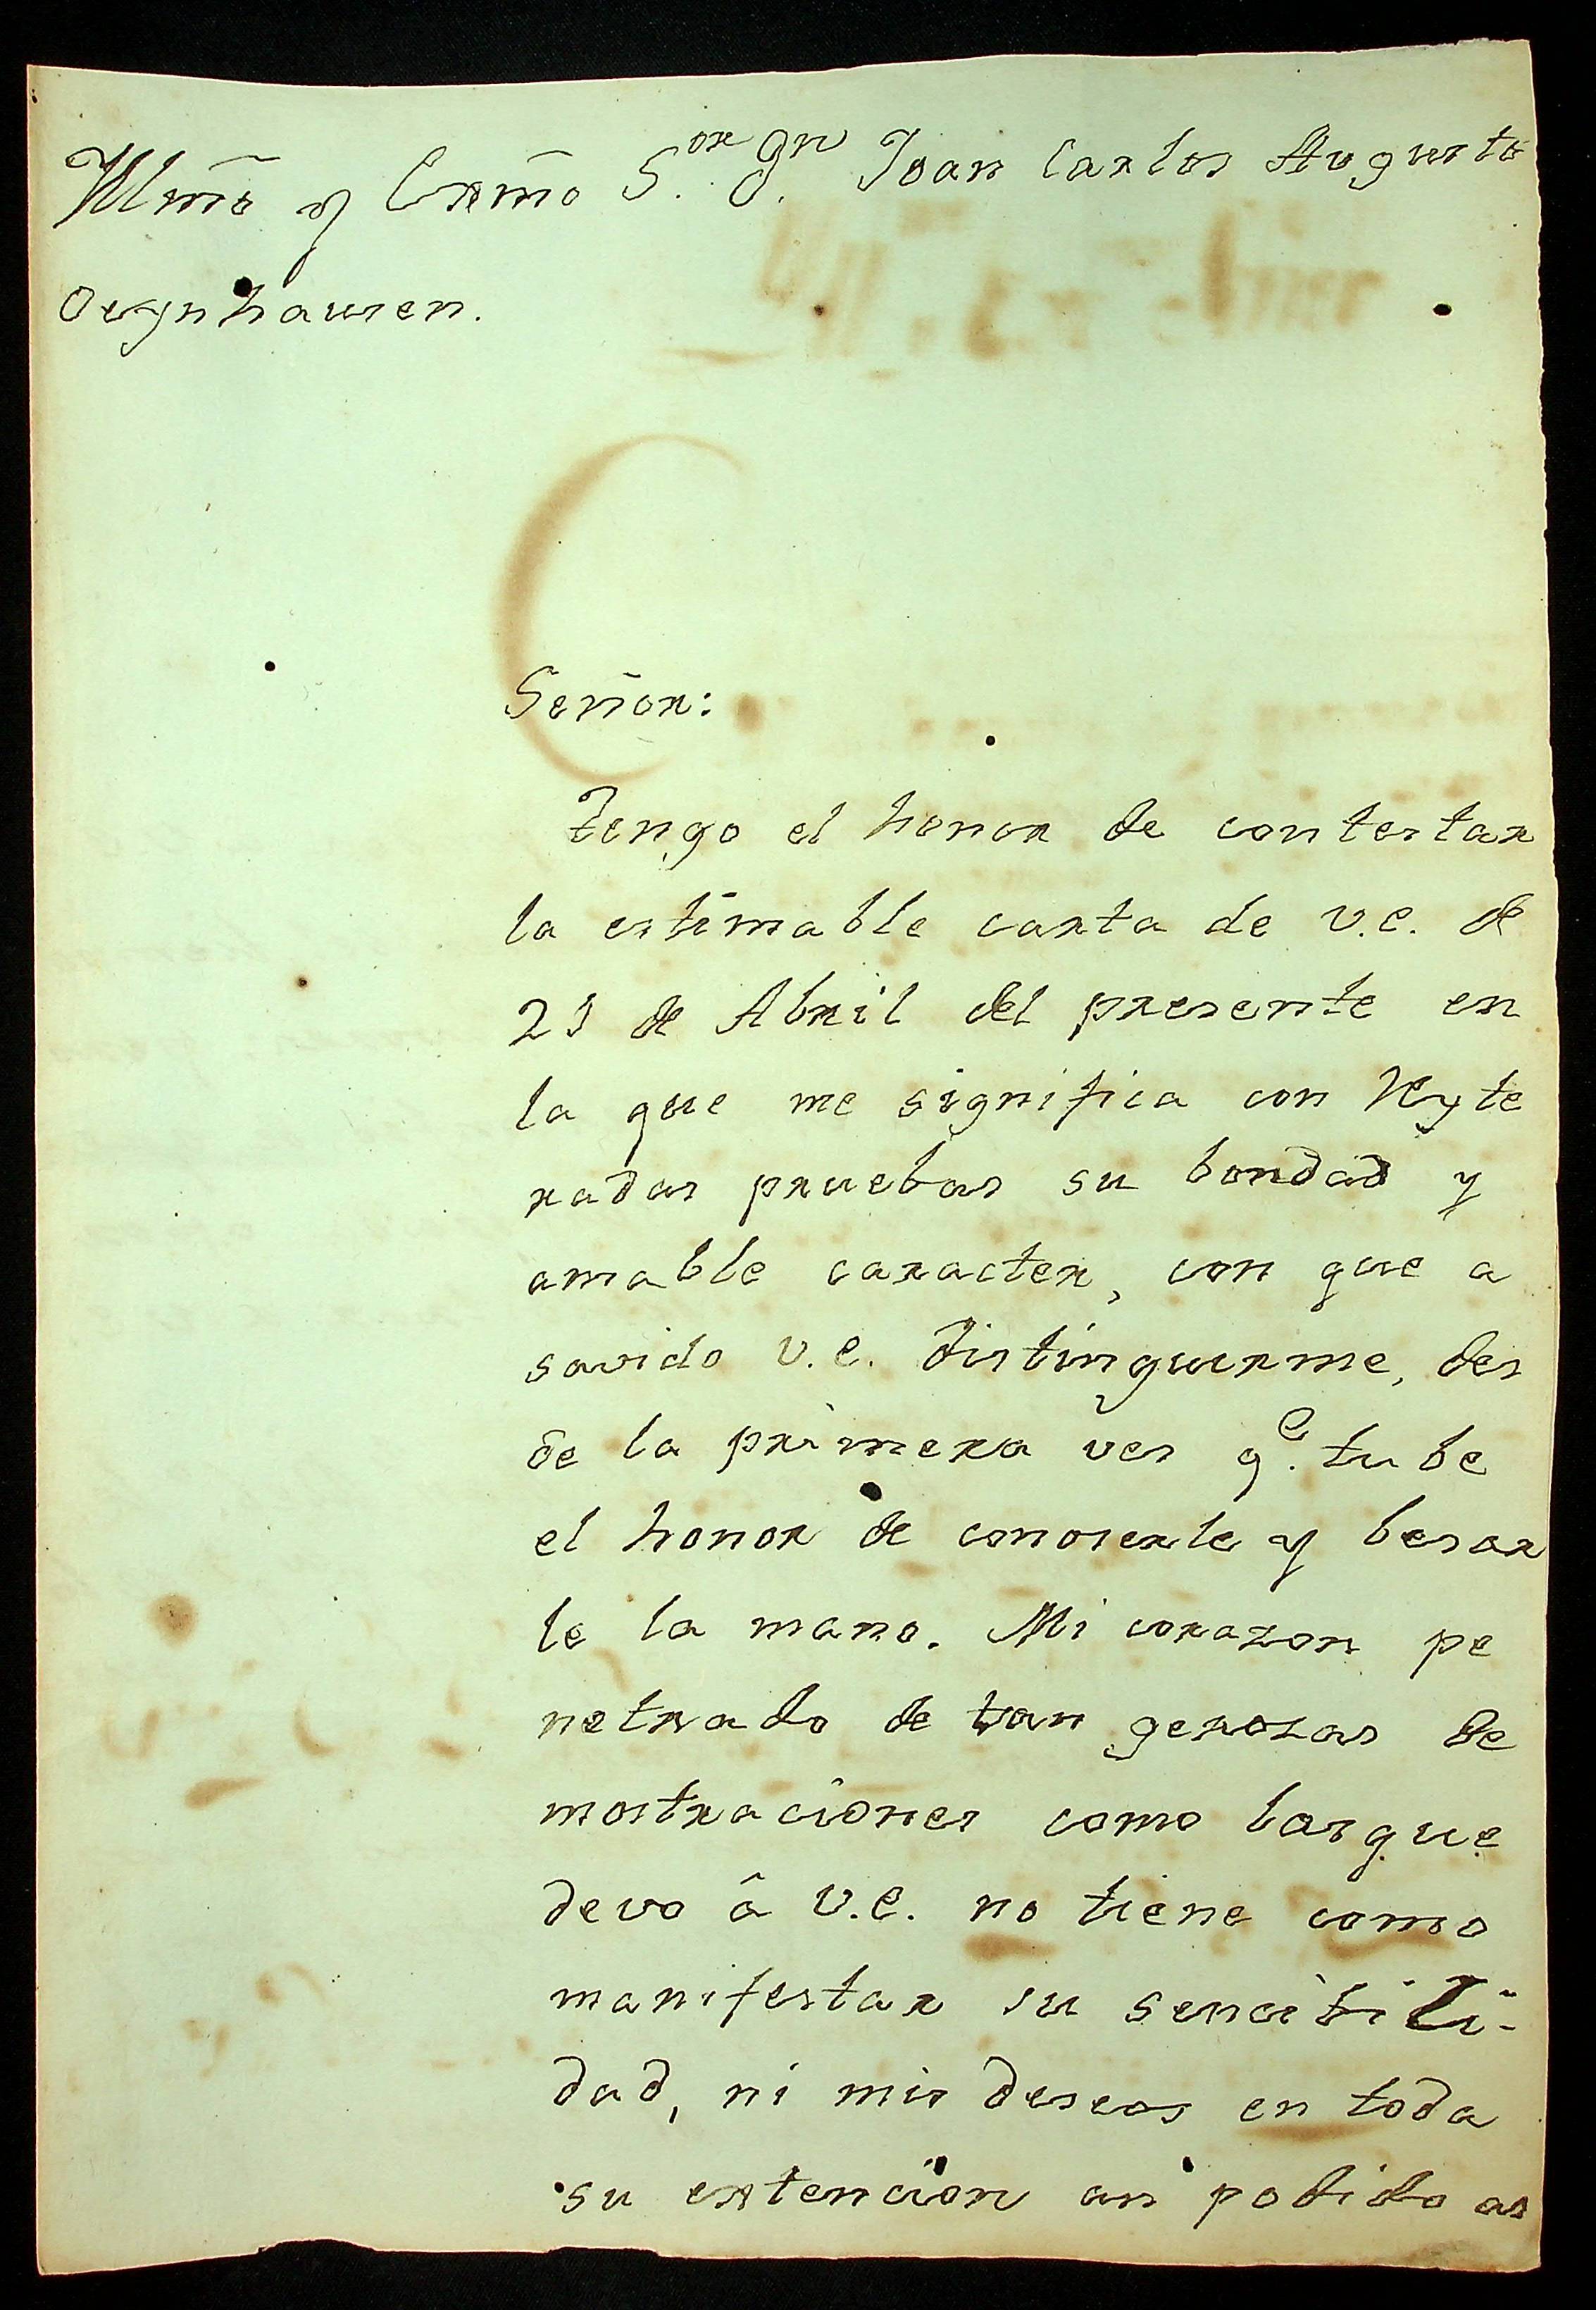 Yllmõ y Exmõ S.or Gn. Joan Carlos Augusto
Oeynhausen.
Señor:
Tengo el honor de contestar
la estimable carta de V.E. de
23 de Abril del presente en
la que me significa con Reyte
radas pruebas su bondad y
amable caracter, con que a
savido V.E. distinguirme, des
de la primera ves q.e tube
el honor de conoserle y besar
le la mano. Mi corazon pe
netrado de tan gerosas de
mostraciones como las que
devo â V.E. no tiene como
manifestar su sencibili-
dad, ni mis deseos en toda
su extencion an podido as